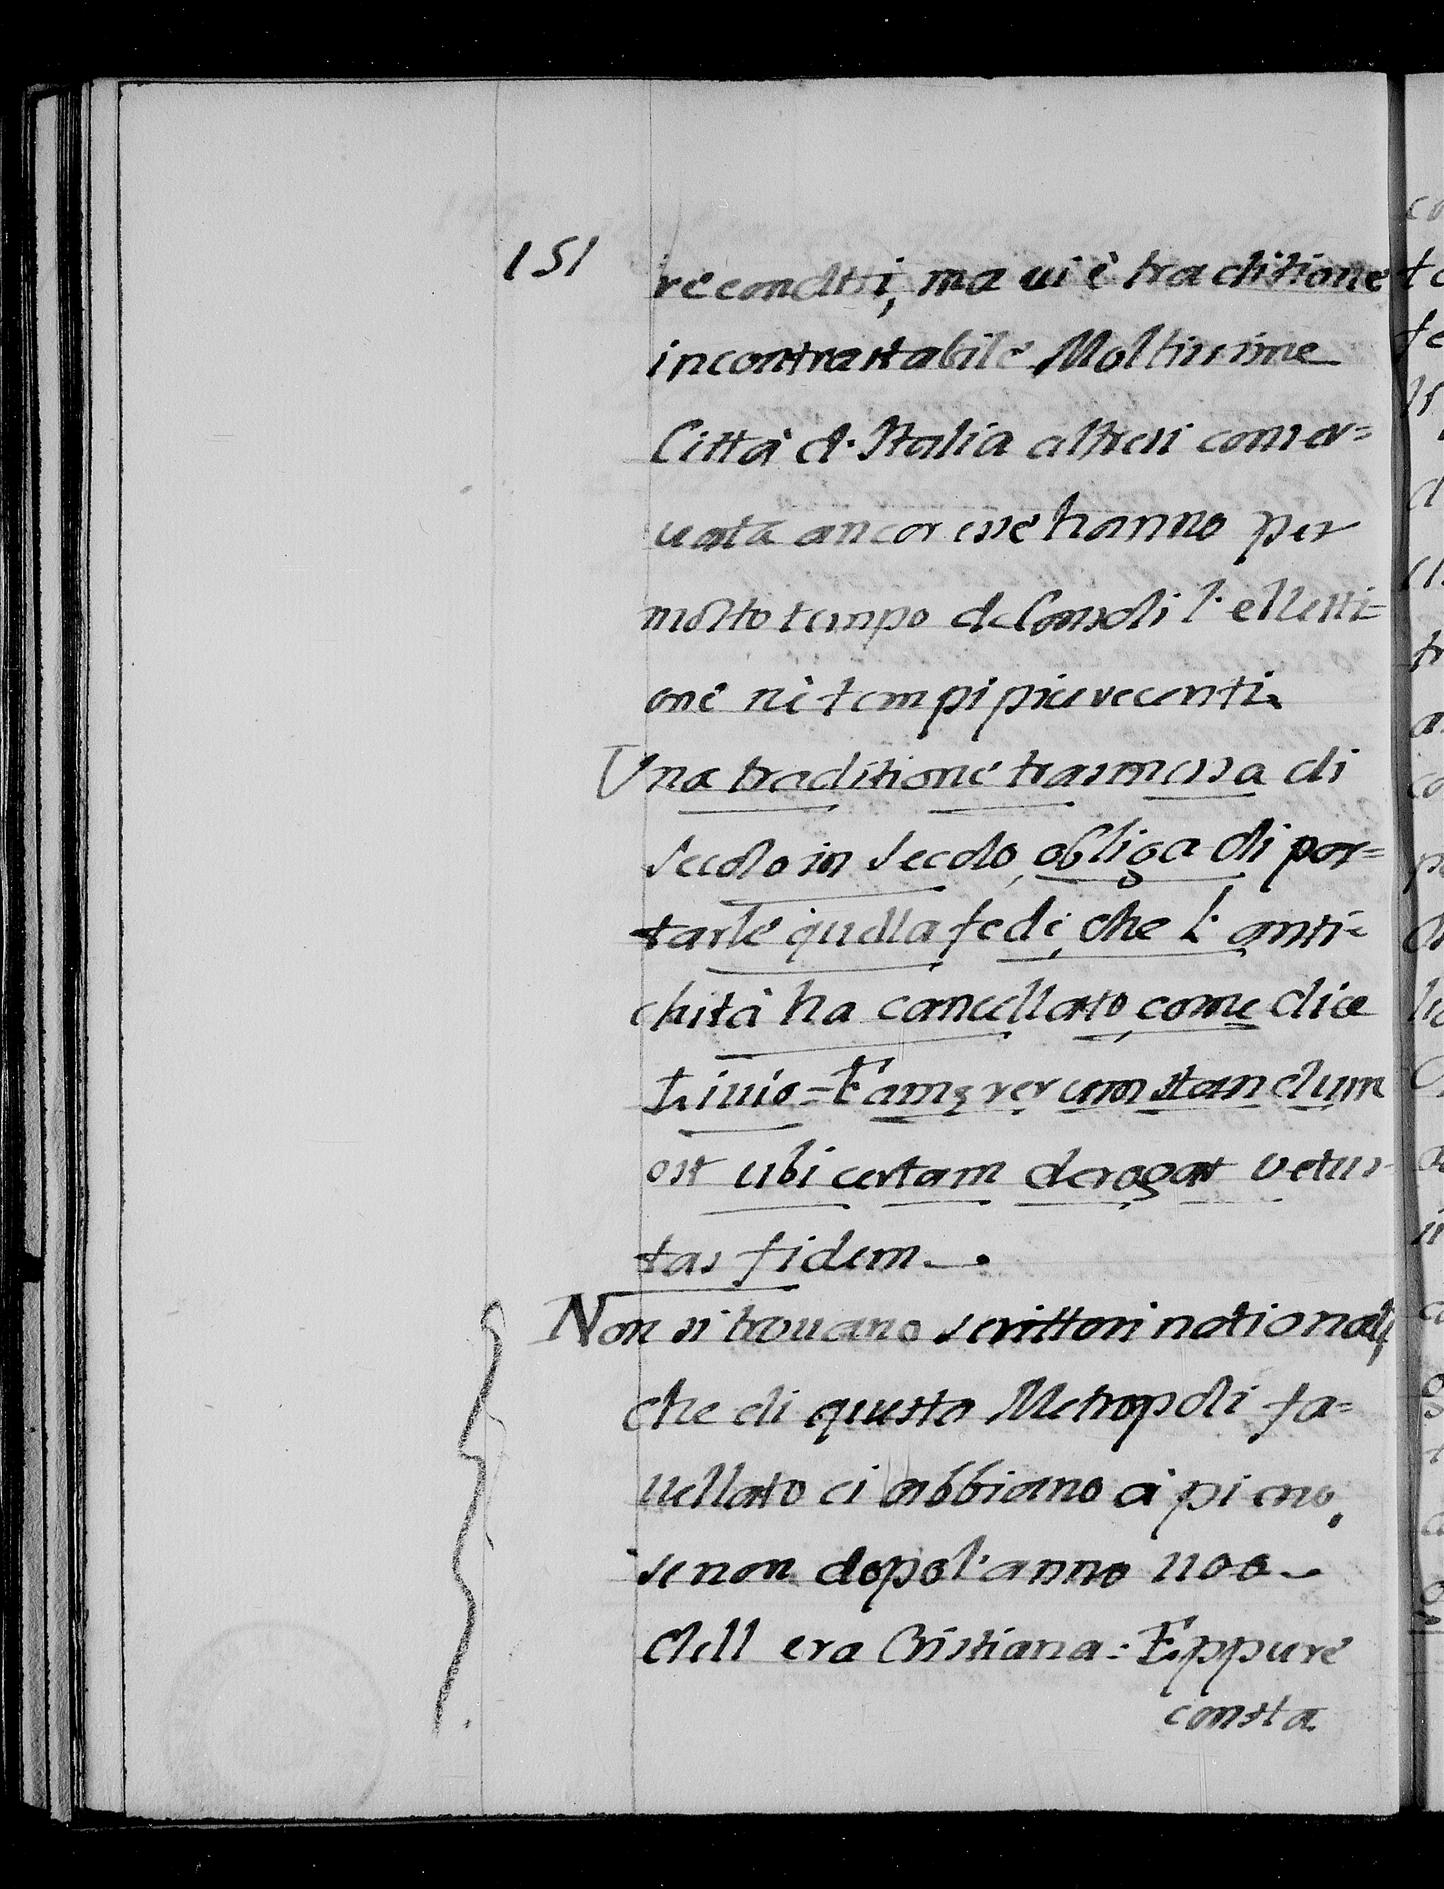 151
reconditi, ma ui è traditione
incontrastabile Moltissime
Città d'Italia altresi conser=
uata ancor esse hanno per
molto tempo de Consoli l'elletti=
one nè tempi piu recenti.
Una traditione trasmessa di
secolo in secolo, obliga di por=
tarle quella fede, che l'anti=
chità ha cancellato, come dice
Liuio = Famę rerum standum
est ubi certam derogat vetus-
tas fidem.
Non si trouano scrittori nationali,
che di questa Metropoli fa=
uellato ci abbiano à pieno,
se non dopo l'anno 1100
dell era Cristiana: Eppure
consta